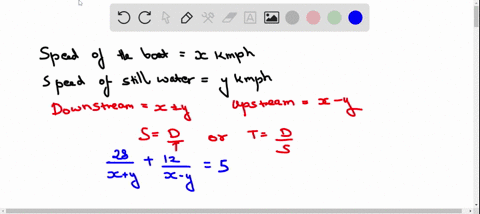 Speed of the boat = x kmph
Speed of still water = y kmph
Downstream = x+y Upstream = x-y
S = D/T or T = D/S
28/x+y + 12/x-y = 5